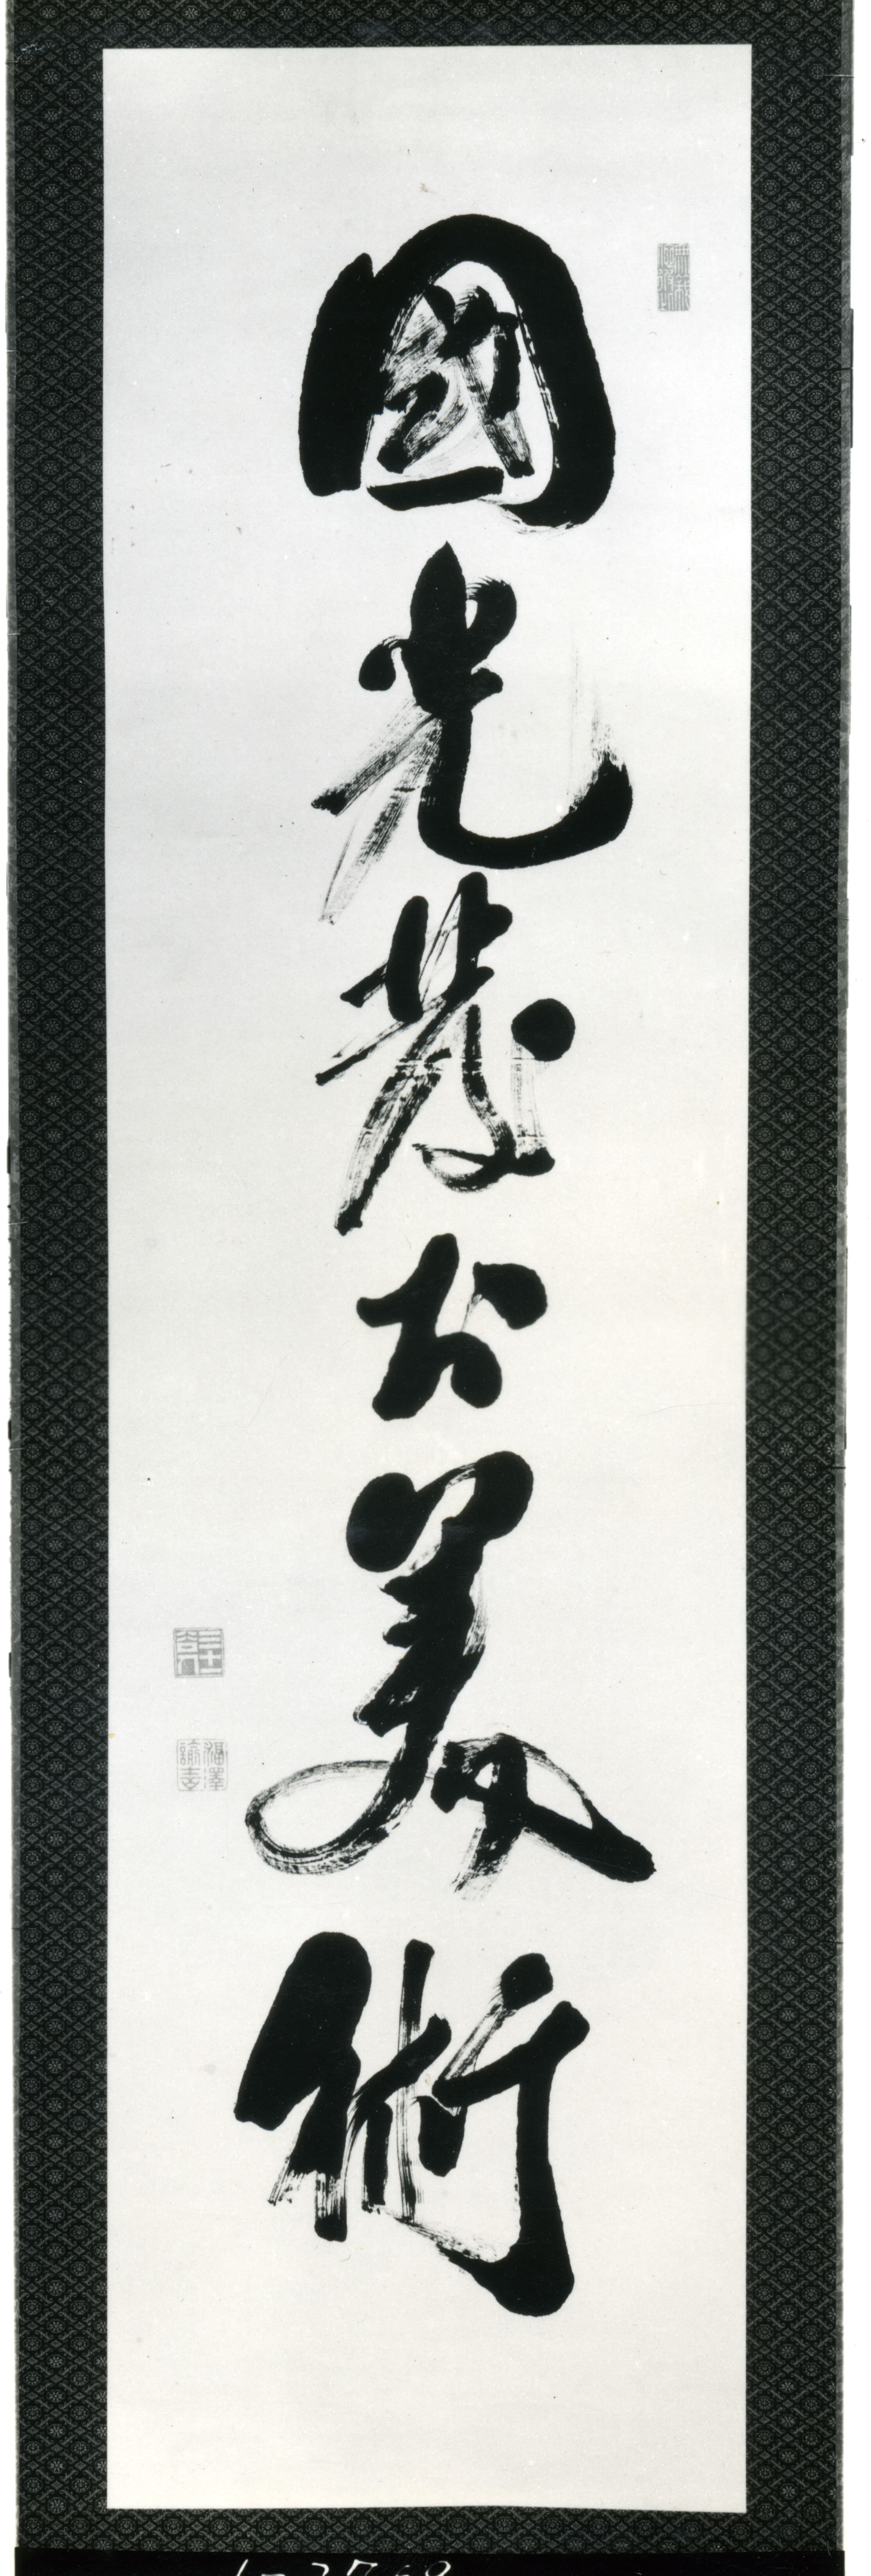 國光發於美術
福澤諭吉